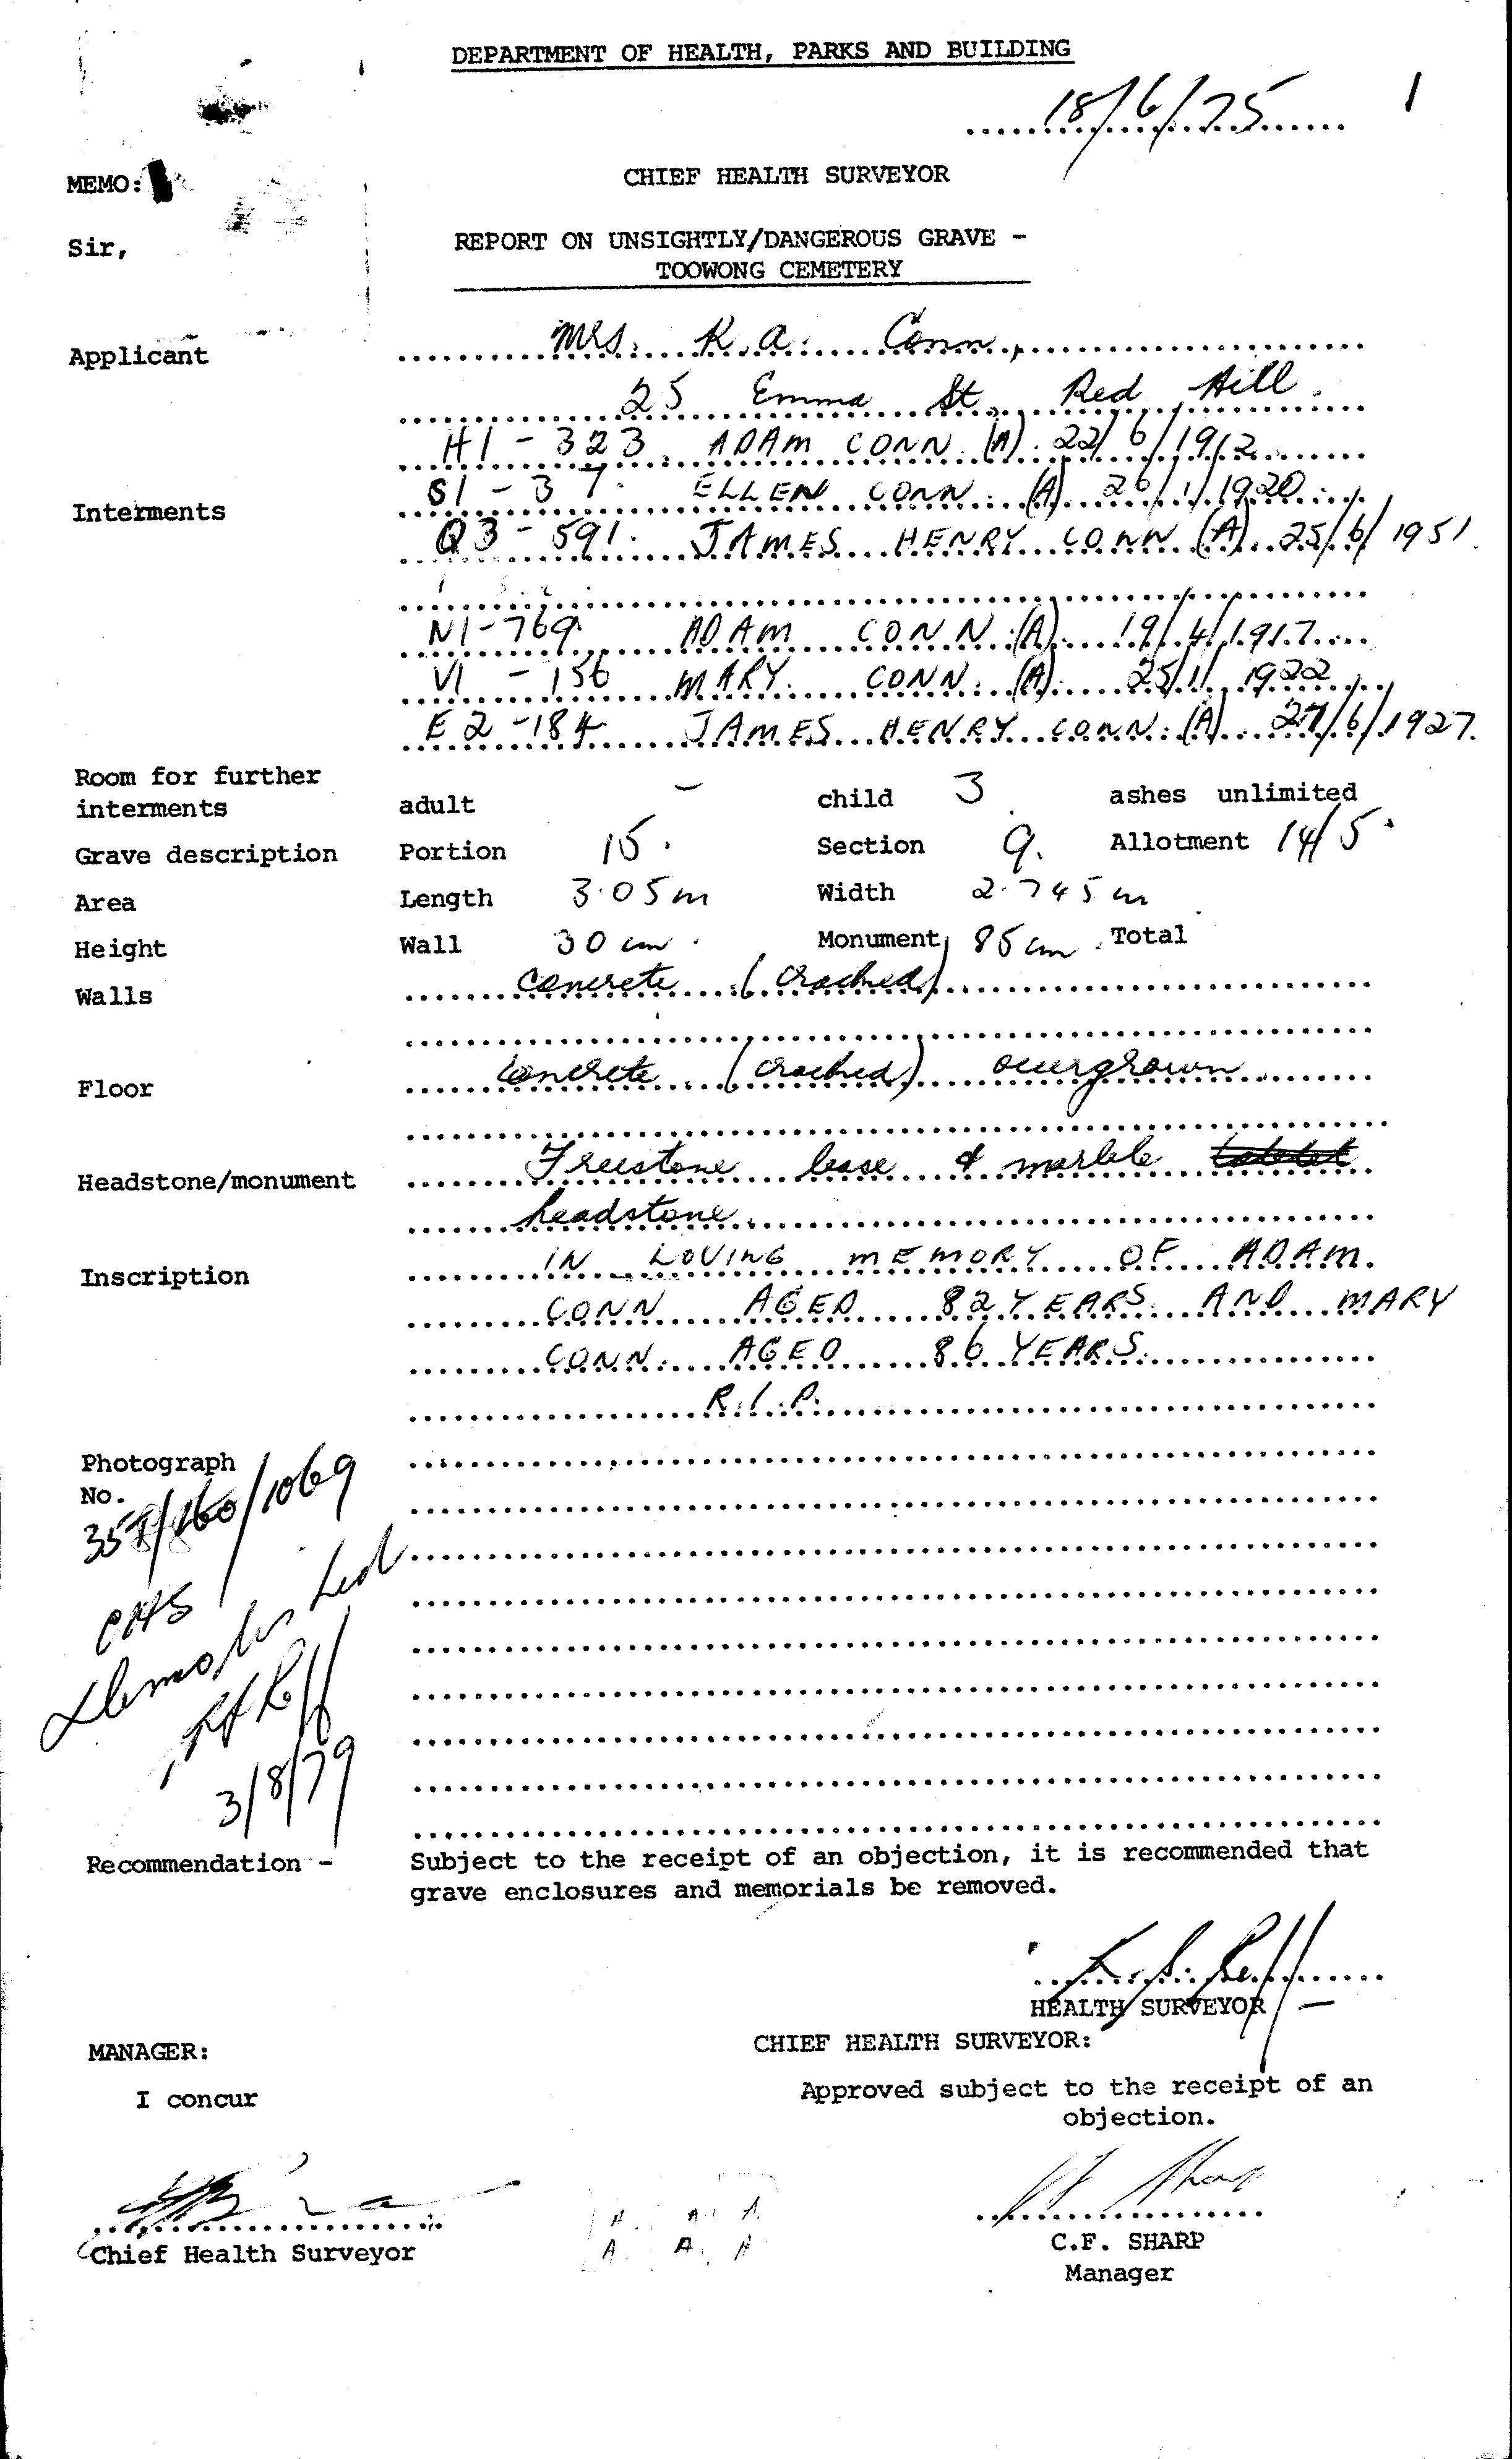 DEPARTMENT OF HEALTH, PARKS AND BUILDING
18/6/75
1
MEMO:
CHIEF HEALTH SURVEYOR
Sir,
REPORT ON UNSIGHTLY/DANGEROUS GRAVE -
TOOWONG CEMETERY
Applicant Mrs. R.A. Conn,
25 Emma St, Red Hill.
H1 - 323. ADAM CONN (A). 22/6/1912
Interments S1 - 37. ELLEN CONN. (A) 26/1/1920
Q3 - 591. JAMES HENRY CONN (A) 25/6/1951.
N1-769. ADAM CONN (A). 19/4/1917
V1 - 156 MARY CONN. (A). 25/1/1922
E2 - 184 JAMES HENRY CONN. (A). 27/6/1927.
Room for further
interments adult - child 3 ashes unlimited
Grave description Portion 15. Section 9. Allotment 14/5.
Area Length 3.05m Width 2.745m
Height Wall 30 cm. Monument 85 cm. Total
Walls concrete (cracked)
Floor concrete (cracked) overgrown
Headstone/monument Freestone base & marble
headstone.
Inscription IN LOVING MEMORY OF ADAM
CONN AGED 82 YEARS AND MARY
CONN AGED 86 YEARS.
R.I.P.
Photograph
No.
/1069
CHS
3/8/79
Recommendation - Subject to the receipt of an objection, it is recommended that
grave enclosures and memorials be removed.
HEALTH SURVEYOR
MANAGER:
CHIEF HEALTH SURVEYOR:
I concur
Approved subject to the receipt of an
objection.
A. A A
A. A. A
Chief Health Surveyor
C.F. SHARP
Manager